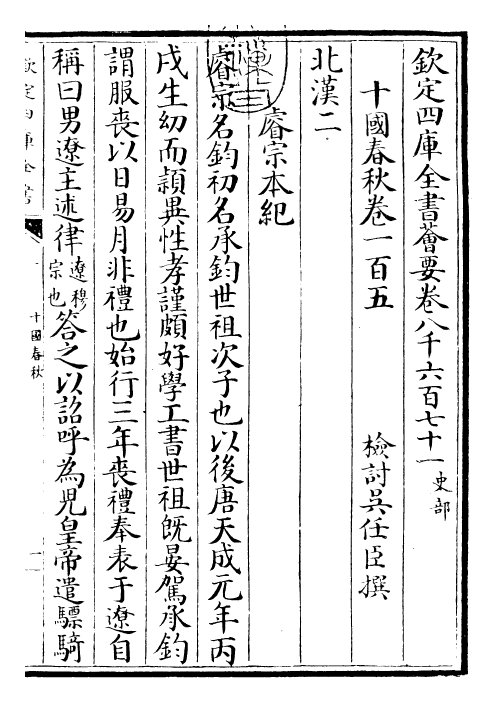 欽定四庫全書薈要卷八千六百七十一 史部
十國春秋卷一百五
檢討吳任臣撰
北漢二
睿宗本紀
睿宗名鈞初名承鈞世祖次子也以後唐天成元年丙
戌生幼而頴異性孝謹頗好學工書世祖既晏駕承鈞
謂服喪以日易月非禮也始行三年喪禮奉表于遼自
稱曰男遼主述律遼穆宗也答之以詔呼為兒皇帝遣驃騎
欽定四庫全書
十國春秋
一